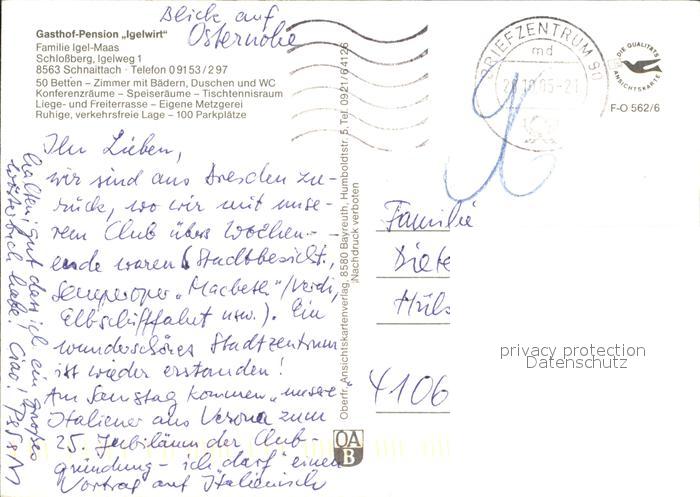 Blick auf
Osternohe
Gasthof-Pension „Igelwirt"
Familie Igel-Maas
Schloßberg, Igelweg 1
8563 Schnaittach · Telefon 0 91 53 / 2 97
50 Betten – Zimmer mit Bädern, Duschen und WC
Konferenzräume – Speiseräume – Tischtennisraum
Liege- und Freiterrasse – Eigene Metzgerei
Ruhige, verkehrsfreie Lage – 100 Parkplätze
Ihr Lieben,
wir sind aus Dresden zu-
rück, wo wir mit unse-
rem Club übers Wochen-
ende waren (Stadtbesicht.,
Semperoper „Macbeth"/Verdi,
Elbschiffahrt usw.). Ein
wunderschönes Stadtzentrum
ist wieder erstanden!
Am Samstag kommen „unsere"
Italiener aus Verona zum
25. Jubiläum der Club-
gründung – ich „darf" einen
Vortrag auf Italienisch
halten; gut dass ich ein großes
Wörterbuch habe! Ciao!
Oberfr. Ansichtskartenverlag, 8580 Bayreuth, Humboldtstr. 5, Tel. 0921/64126
Nachdruck verboten
OA
B
BRIEFZENTRUM 90
md
DIE QUALITÄTS
ANSICHTSKARTE
F-O 562/6
Familie
Diete
Hüls
4106
privacy protection
Datenschutz